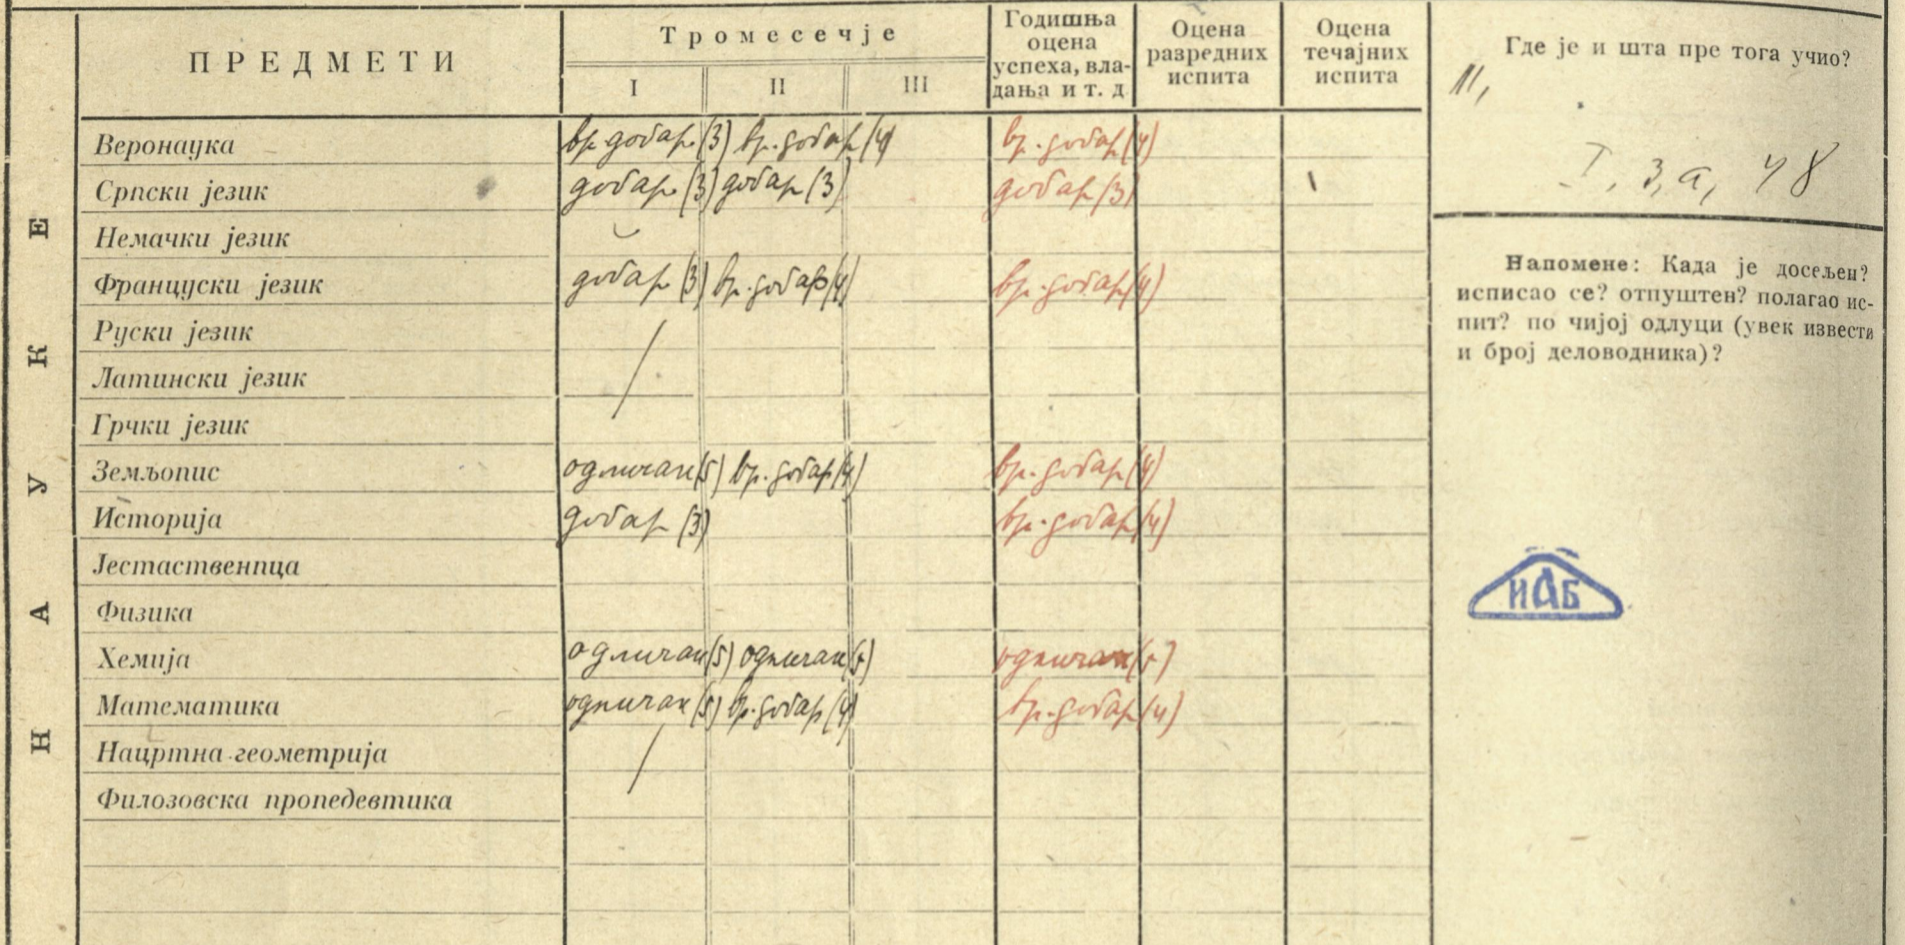 ПРЕДМЕТИ
Тромесечје
I II III
Годишња оцена успеха, вла-дања и т. д
Оцена разредних испита
Оцена течајних испита
Где је и шта пре тога учио?
II,
I, 3, а, 48
НАУКЕ
Веронаука вр. добар (3) вр. добар (4) вр. добар (4)
Српски језик добар (3) добар (3) добар (3)
Немачки језик
Француски језик добар (3) вр. добар (4) вр. добар (4)
Руски језик
Латински језик
Грчки језик
Земљопис одличан (5) вр. добар (4) вр. добар (4)
Историја добар (3) вр. добар (4)
Јестаственица
Физика
Хемија одличан (5) одличан (5) одличан (5)
Математика одличан (5) вр. добар (4) вр. добар (4)
Нацртна геометрија
Филозовска пропедевтика
Напомене: Када је досељен?
исписао се? отпуштен? полагао ис-
пит? по чијој одлуци (увек извести
и број деловодника)?
ИАБ